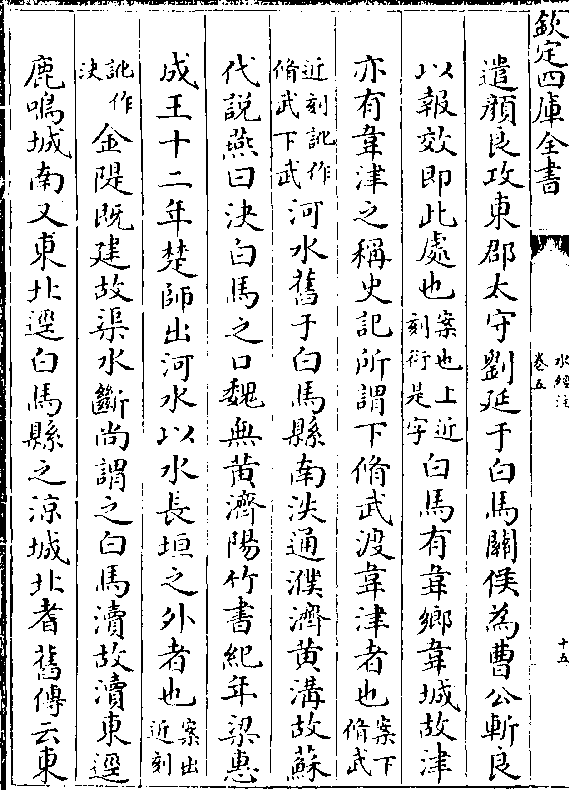 欽定四庫全書
水經注
卷五
十五
遣顏良攻東郡太守劉延于白馬關侯為曹公斬良
以報效即此處也案也上近刻衍是字白馬有韋鄉韋城故津
亦有韋津之稱史記所謂下脩武渡韋津者也案下脩武
近刻訛作脩武下武河水舊于白馬縣南泆通濮濟黃溝故蘇
代說燕曰決白馬之口魏無黃濟陽竹書紀年梁惠
成王十二年楚師出河水以水長垣之外者也案出近刻
訛作決金隄既建故渠水斷尚謂之白馬瀆故瀆東逕
鹿鳴城南又東北逕白馬縣之涼城北耆舊傳云東